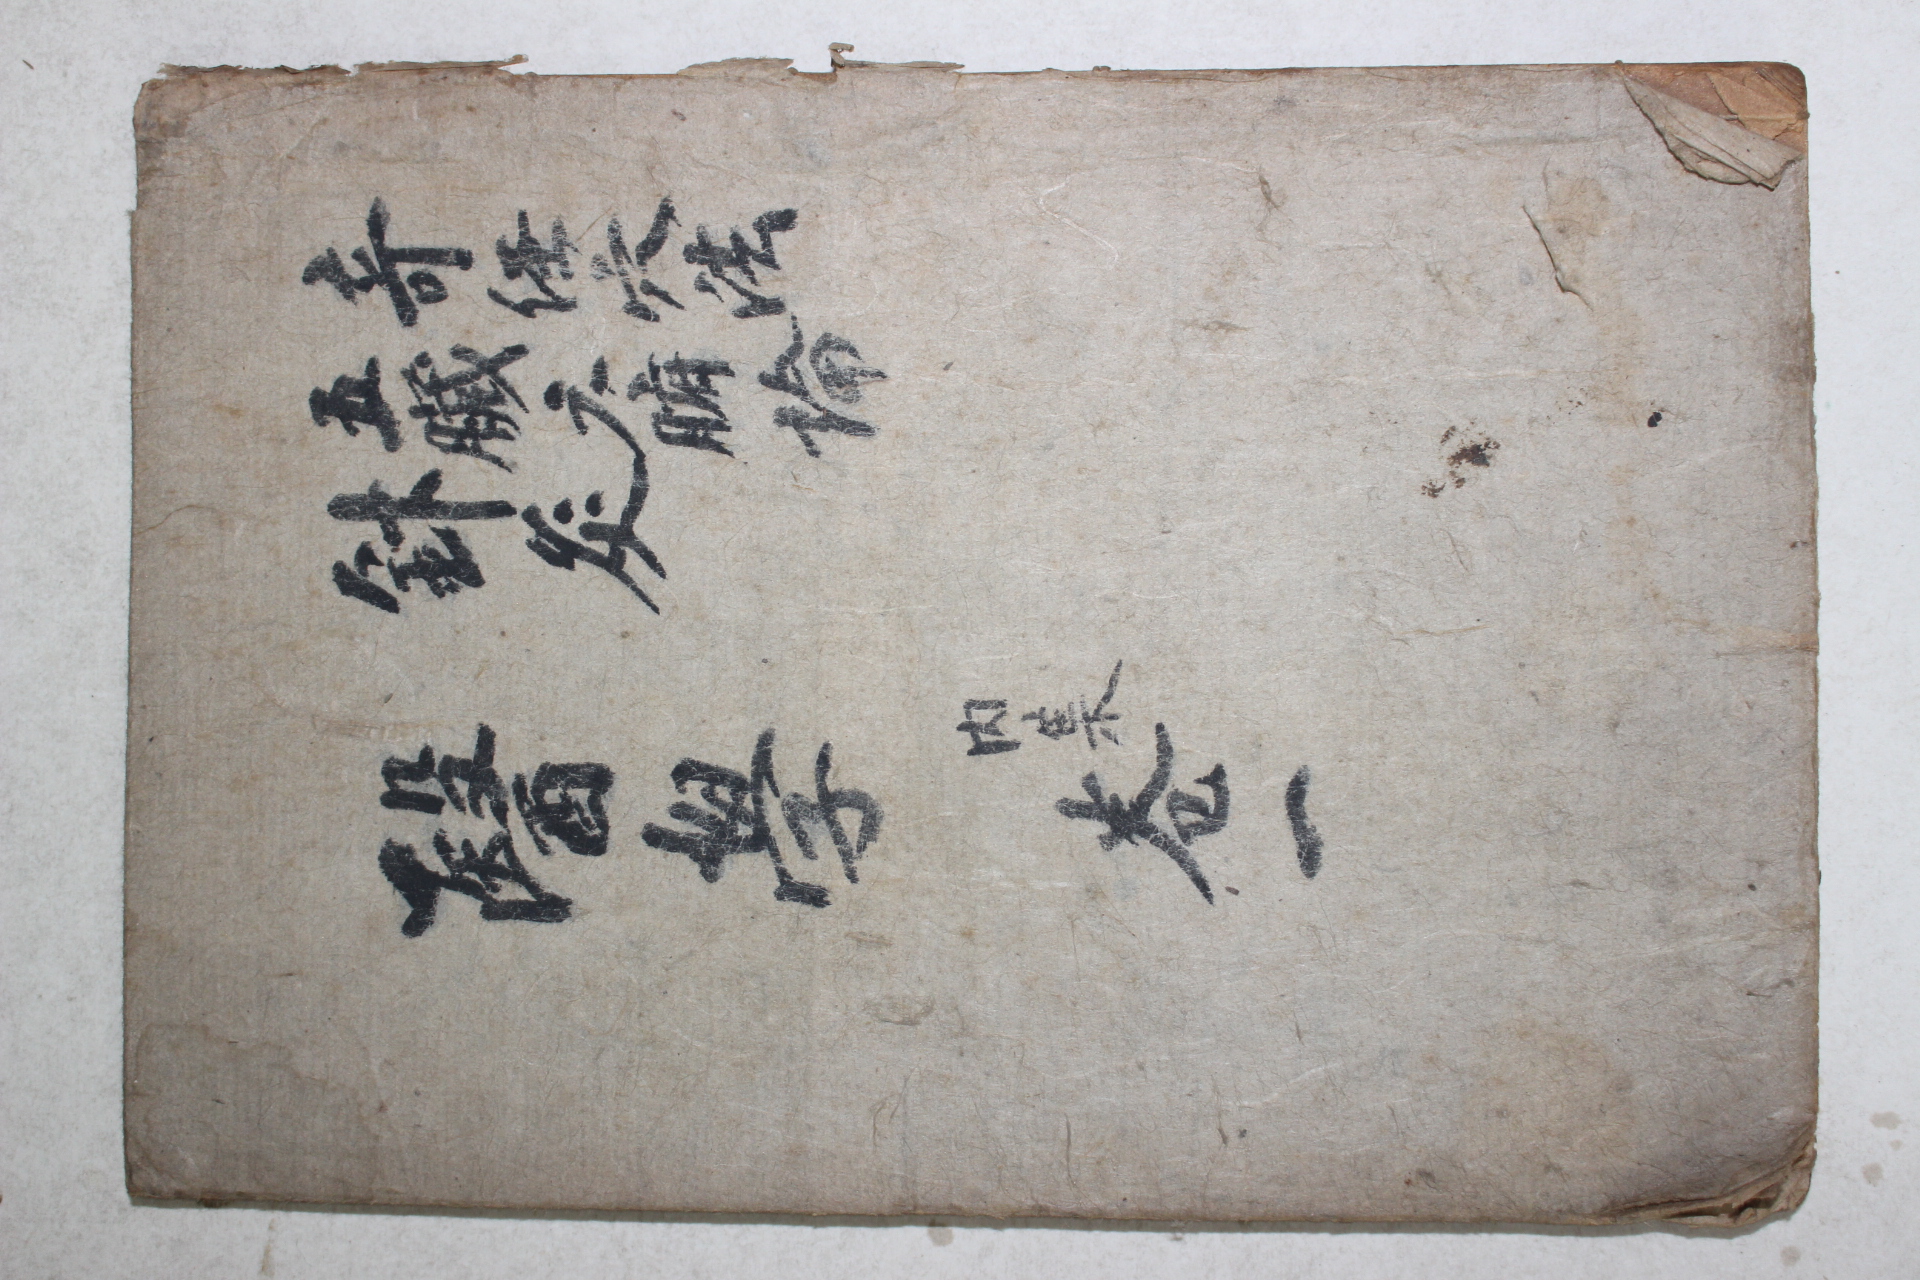 奇经穴法
五臟六腑論
針灸
醫學
內集
卷一